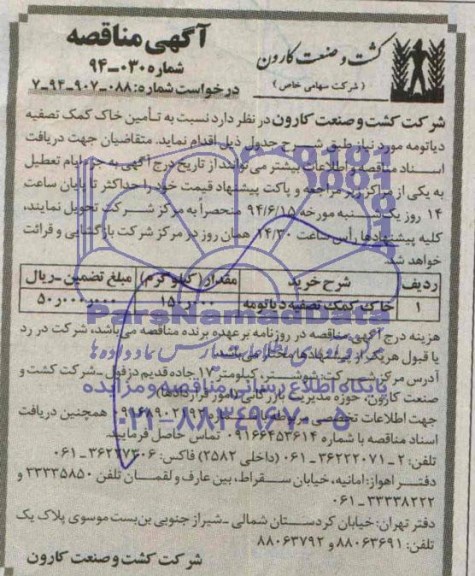 آگهی مناقصه
شماره ۰۳۰-۹۴
درخواست شماره: ۰۸۸-۹۰۷-۹۴-۷
کشت و صنعت کارون
(شرکت سهامی خاص)
شرکت کشت و صنعت کارون در نظر دارد نسبت به تأمین خاک کمک تصفیه
دیاتومه مورد نیاز طبق شرح جدول ذیل اقدام نماید. متقاضیان جهت دریافت
اسناد مناقصه و اطلاعات بیشتر می‌توانند از تاریخ درج آگهی به جز ایام تعطیل
به یکی از مراکز زیر مراجعه و پاکت پیشنهاد قیمت خود را حداکثر تا پایان ساعت
۱۴ روز یکشنبه مورخه ۹۴/۶/۱۵ منحصراً به مرکز شرکت تحویل نمایند،
کلیه پیشنهادها رأس ساعت ۱۴/۳۰ همان روز در مرکز شرکت بازگشایی و قرائت
خواهد شد.
ردیف شرح خرید مقدار (کیلوگرم) مبلغ تضمین-ریال
۱ خاک کمک تصفیه دیاتومه ۱۵۰٫۰۰۰ ۵۰٫۰۰۰٫۰۰۰
ParsNamadData
هزینه درج آگهی مناقصه در روزنامه بر عهده برنده مناقصه می‌باشد، شرکت در رد
یا قبول هریک از پیشنهادها مختار می‌باشد.
آدرس مرکز شرکت: شوشتر، کیلومتر ۱۷ جاده قدیم دزفول-شرکت کشت و
صنعت کارون، حوزه مدیریت بازرگانی (امور قراردادها)
پایگاه اطلاع رسانی مناقصه و مزایده
۰۲۱-۸۸۳۴۹۶۷۰-۵
جهت اطلاعات تخصصی همچنین دریافت
اسناد مناقصه با شماره ۰۹۱۶۶۴۵۳۶۱۴ تماس حاصل فرمایید.
تلفن: ۲-۳۶۲۲۲۰۷۱-۰۶۱ (داخلی ۲۵۸۲) فاکس: ۳۶۲۲۷۳۰۶-۰۶۱
دفتر اهواز: امانیه، خیابان سقراط، بین عارف و لقمان تلفن ۳۳۳۳۵۸۵۰ و
۳۳۳۳۸۲۲۲-۰۶۱
دفتر تهران: خیابان کردستان شمالی-شیراز جنوبی بن‌بست موسوی پلاک یک
تلفن: ۸۸۰۶۳۶۹۱ و ۸۸۰۶۳۷۹۲
شرکت کشت و صنعت کارون